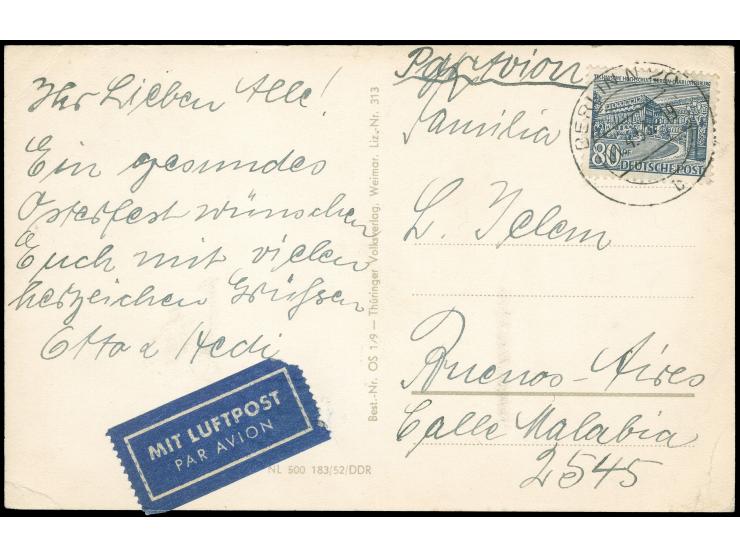 Ihr Lieben Alle!
Ein gesundes
Osterfest wünschen
Euch mit vielen
herzeichen Grüssen
Otto u Hedi
MIT LUFTPOST
PAR AVION
NL 500 183/52/DDR
Best.-Nr. OS 1/9 — Thüringer Volksverlag, Weimar. Liz.-Nr. 313
Par Avion
TECHNISCHE HOCHSCHULE BERLIN-CHARLOTTENBURG
80
DEUTSCHE POST
BERLIN
b
Familia
L. Telem
Buenos-Aires
Calle Malabia
2545